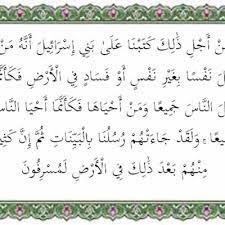 نْ أَجْلِ ذَٰلِكَ كَتَبْنَا عَلَىٰ بَنِي إِسْرَائِيلَ أَنَّهُ مَنْ
لَ نَفْسًا بِغَيْرِ نَفْسٍ أَوْ فَسَادٍ فِي الْأَرْضِ فَكَأَنَّ
لَ النَّاسَ جَمِيعًا وَمَنْ أَحْيَاهَا فَكَأَنَّمَا أَحْيَا النَّاسَ
يعًا ۚ وَلَقَدْ جَاءَتْهُمْ رُسُلُنَا بِالْبَيِّنَاتِ ثُمَّ إِنَّ كَثِي
مِنْهُمْ بَعْدَ ذَٰلِكَ فِي الْأَرْضِ لَمُسْرِفُونَ